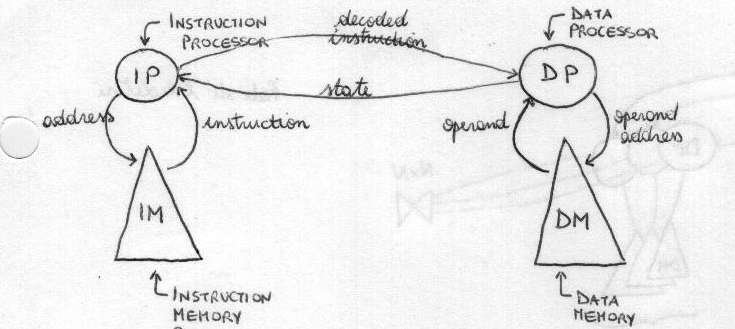 INSTRUCTION
PROCESSOR
decoded
instruction
DATA
PROCESSOR
IP
DP
state
address
instruction
operand
operand
address
IM
DM
INSTRUCTION
MEMORY
DATA
MEMORY